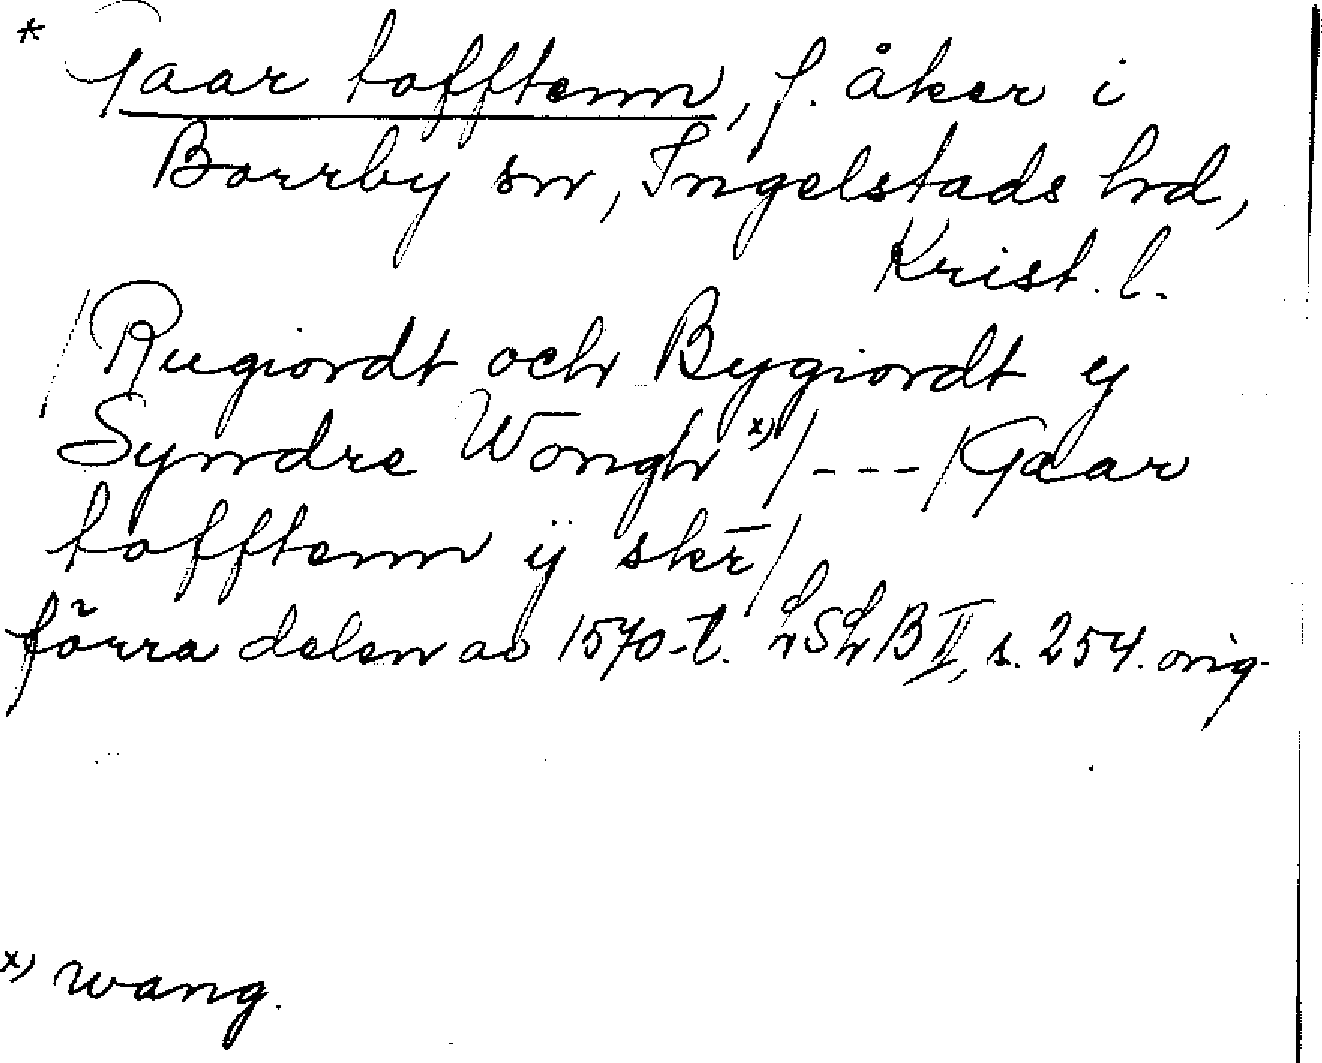 * Gaar tofftenn, f. åker i
Borrby sn, Ingelstads hd,
Krist. l.
/Rugiordt och Bygiordt y
Syndre Wongh x)/ - - - /Gaar
tofftenn ÿ skr̄/
förra delen av 1570-t. LSLB II, s. 254. orig.
x) wang.